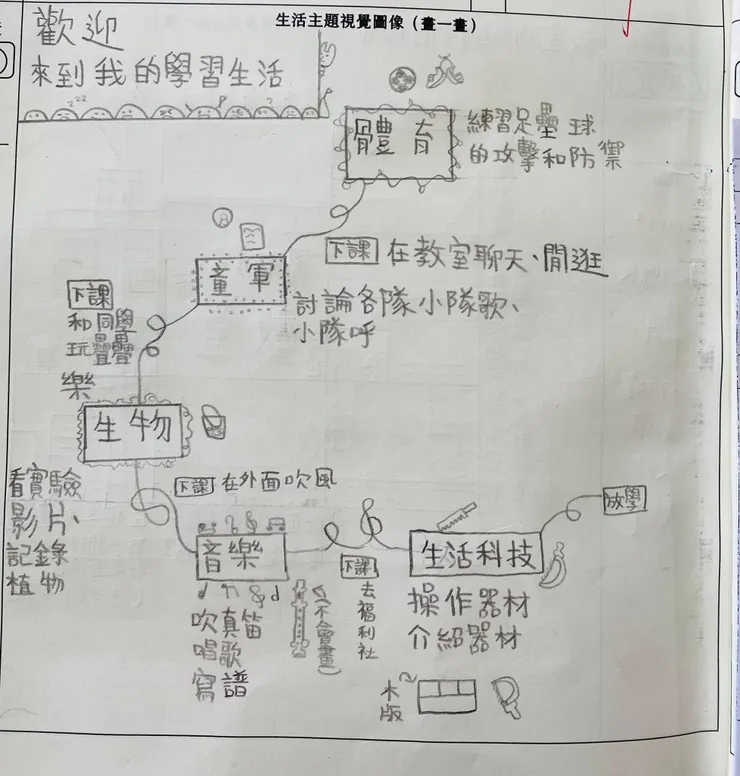 生活主題視覺圖像（畫一畫）
歡迎
來到我的學習生活
zzz
體育
練習足壘球
的攻擊和防禦
下課
在教室聊天、閒逛
童軍
討論各隊小隊歌、
小隊呼
下課
和同學
玩疊疊
樂
生物
看實驗
影片、
記錄
植物
下課
在外面吹風
音樂
吹真笛
唱歌
寫譜
(不會畫)
下課
去福利社
生活科技
操作器材
介紹器材
木版
放學